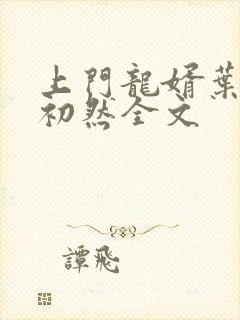 上門龍婿葉
初然全文
譚飛